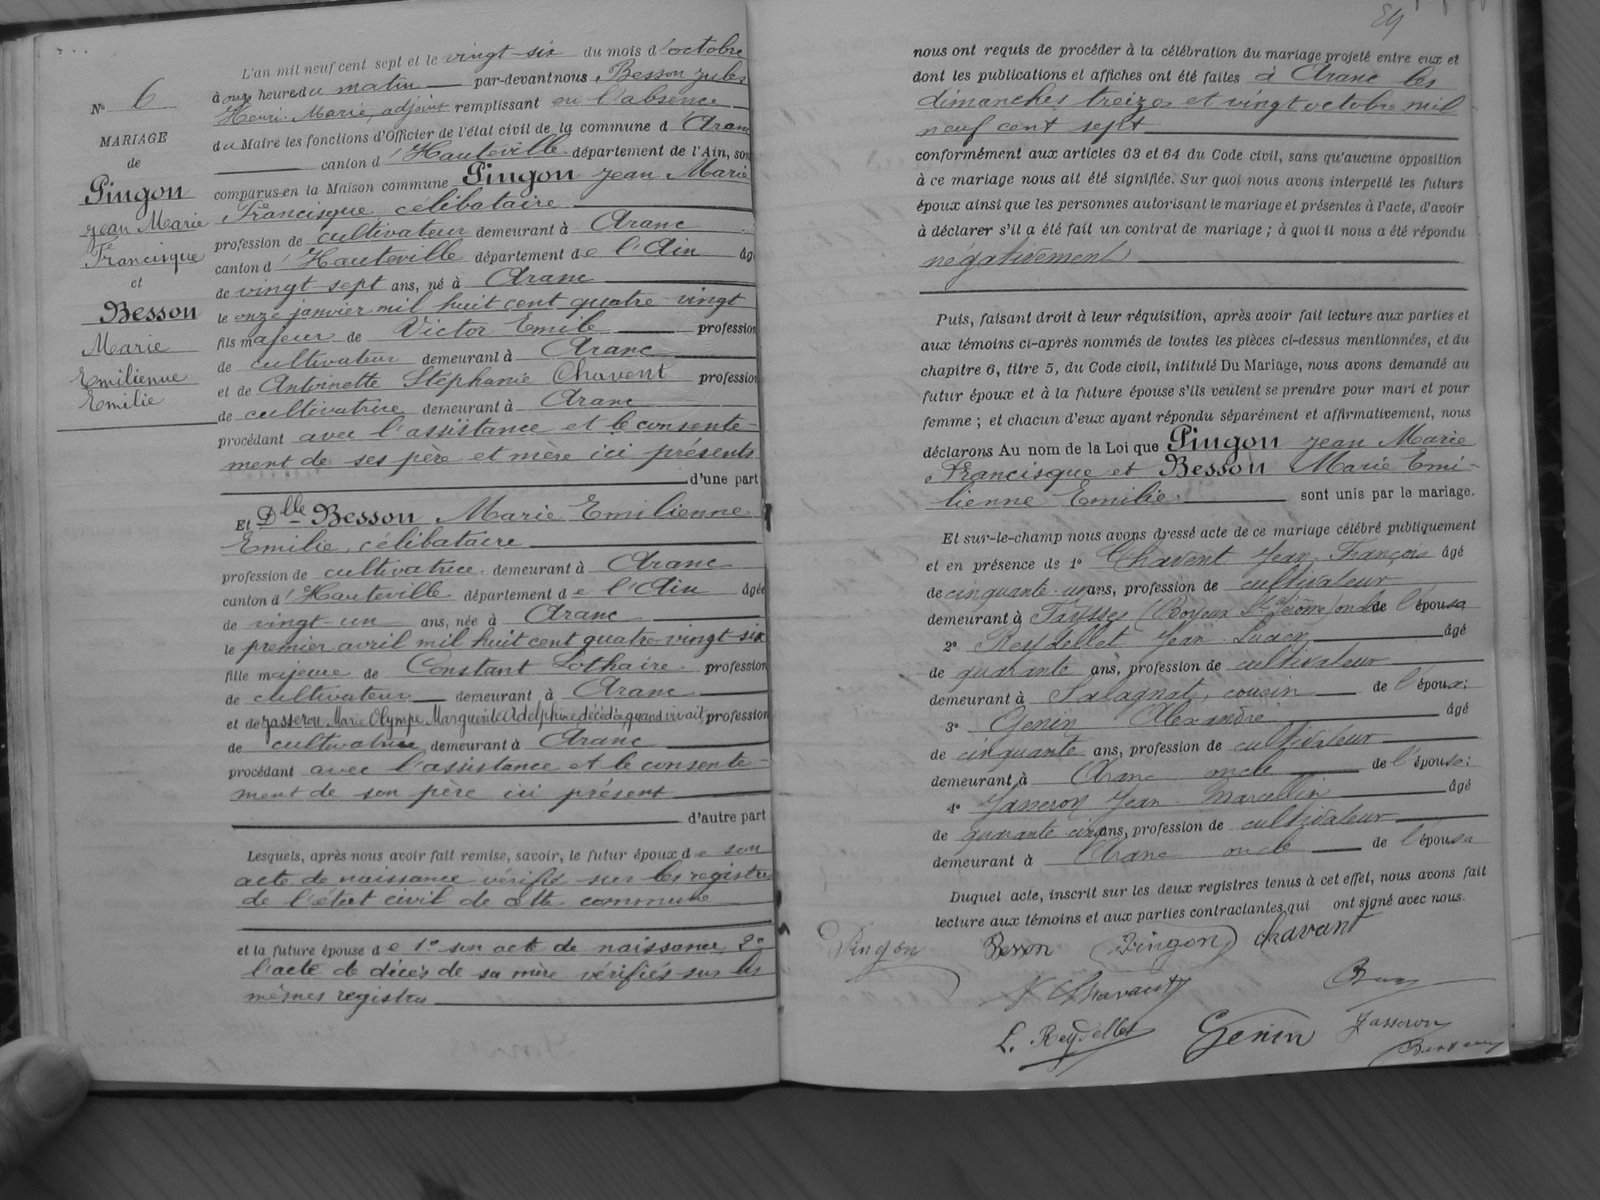 N° 6
MARIAGE
de
Pingon
Jean Marie
Francisque
et
Besson
Marie
Emilienne
Emilie
L'an mil neuf cent sept et le vingt-six du mois d'octobre
à onze heures du matin par-devant nous Besson Jules
Henri-Marie, adjoint remplissant en l'absence
du Maire les fonctions d'Officier de l'état civil de la commune d'Aranc
canton d'Hauteville département de l'Ain, son
comparus en la Maison commune Pingon Jean Marie
Francisque, célibataire
profession de cultivateur demeurant à Aranc
canton d'Hauteville département de l'Ain âg
de vingt-sept ans, né à Aranc
le onze janvier mil huit cent quatre-vingt
fils majeur de Victor Emile profession
de cultivateur demeurant à Aranc
et de Antoinette Stéphanie Chavent profession
de cultivatrice demeurant à Aranc
procédant avec l'assistance et le consente-
ment de ses père et mère ici présents
d'une part
Et Dlle Besson Marie Emilienne
Emilie, célibataire
profession de cultivatrice demeurant à Aranc
canton d'Hauteville département de l'Ain âgée
de vingt-un ans, née à Aranc
le premier avril mil huit cent quatre-vingt-six
fille majeure de Constant Lothaire profession
de cultivateur demeurant à Aranc
et de Jasseron Marie Olympe Marguerite Adelphine décédée, quand vivait profession
de cultivatrice demeurant à Aranc
procédant avec l'assistance et le consente-
ment de son père ici présent
d'autre part
Lesquels, après nous avoir fait remise, savoir, le futur époux de son
acte de naissance vérifié sur les registres
de l'état civil de cette commune
et la future épouse de 1° son acte de naissance 2°
l'acte de décès de sa mère vérifiés sur les
mêmes registres
nous ont requis de procéder à la célébration du mariage projeté entre eux et
dont les publications et affiches ont été faites à Aranc les
dimanches treize et vingt octobre mil
neuf cent sept
conformément aux articles 63 et 64 du Code civil, sans qu'aucune opposition
à ce mariage nous ait été signifiée. Sur quoi nous avons interpellé les futurs
époux ainsi que les personnes autorisant le mariage et présentes à l'acte, d'avoir
à déclarer s'il a été fait un contrat de mariage ; à quoi il nous a été répondu
négativement
Puis, faisant droit à leur réquisition, après avoir fait lecture aux parties et
aux témoins ci-après nommés de toutes les pièces ci-dessus mentionnées, et du
chapitre 6, titre 5, du Code civil, intitulé Du Mariage, nous avons demandé au
futur époux et à la future épouse s'ils veulent se prendre pour mari et pour
femme ; et chacun d'eux ayant répondu séparément et affirmativement, nous
déclarons Au nom de la Loi que Pingon Jean Marie
Francisque et Besson Marie Emi-
lienne Emilie sont unis par le mariage.
Et sur-le-champ nous avons dressé acte de ce mariage célébré publiquement
et en présence de 1° Chavent Jean François âgé
de cinquante-un ans, profession de cultivateur
demeurant à (Boyeux St Jérôme) oncle de l'époux
2° Reydellet Jean Lucien âgé
de quarante ans, profession de cultivateur
demeurant à Salagnat, cousin de l'époux;
3° Genin Alexandre âgé
de cinquante ans, profession de cultivateur
demeurant à Aranc oncle de l'épouse;
4° Jasseron Jean-Marcellin âgé
de quarante cinq ans, profession de cultivateur
demeurant à Aranc oncle de l'épouse
Duquel acte, inscrit sur les deux registres tenus à cet effet, nous avons fait
lecture aux témoins et aux parties contractantes qui ont signé avec nous.
Pingon Besson Pingon Chavant
Chavant
L. Reydellet Genin Jasseron